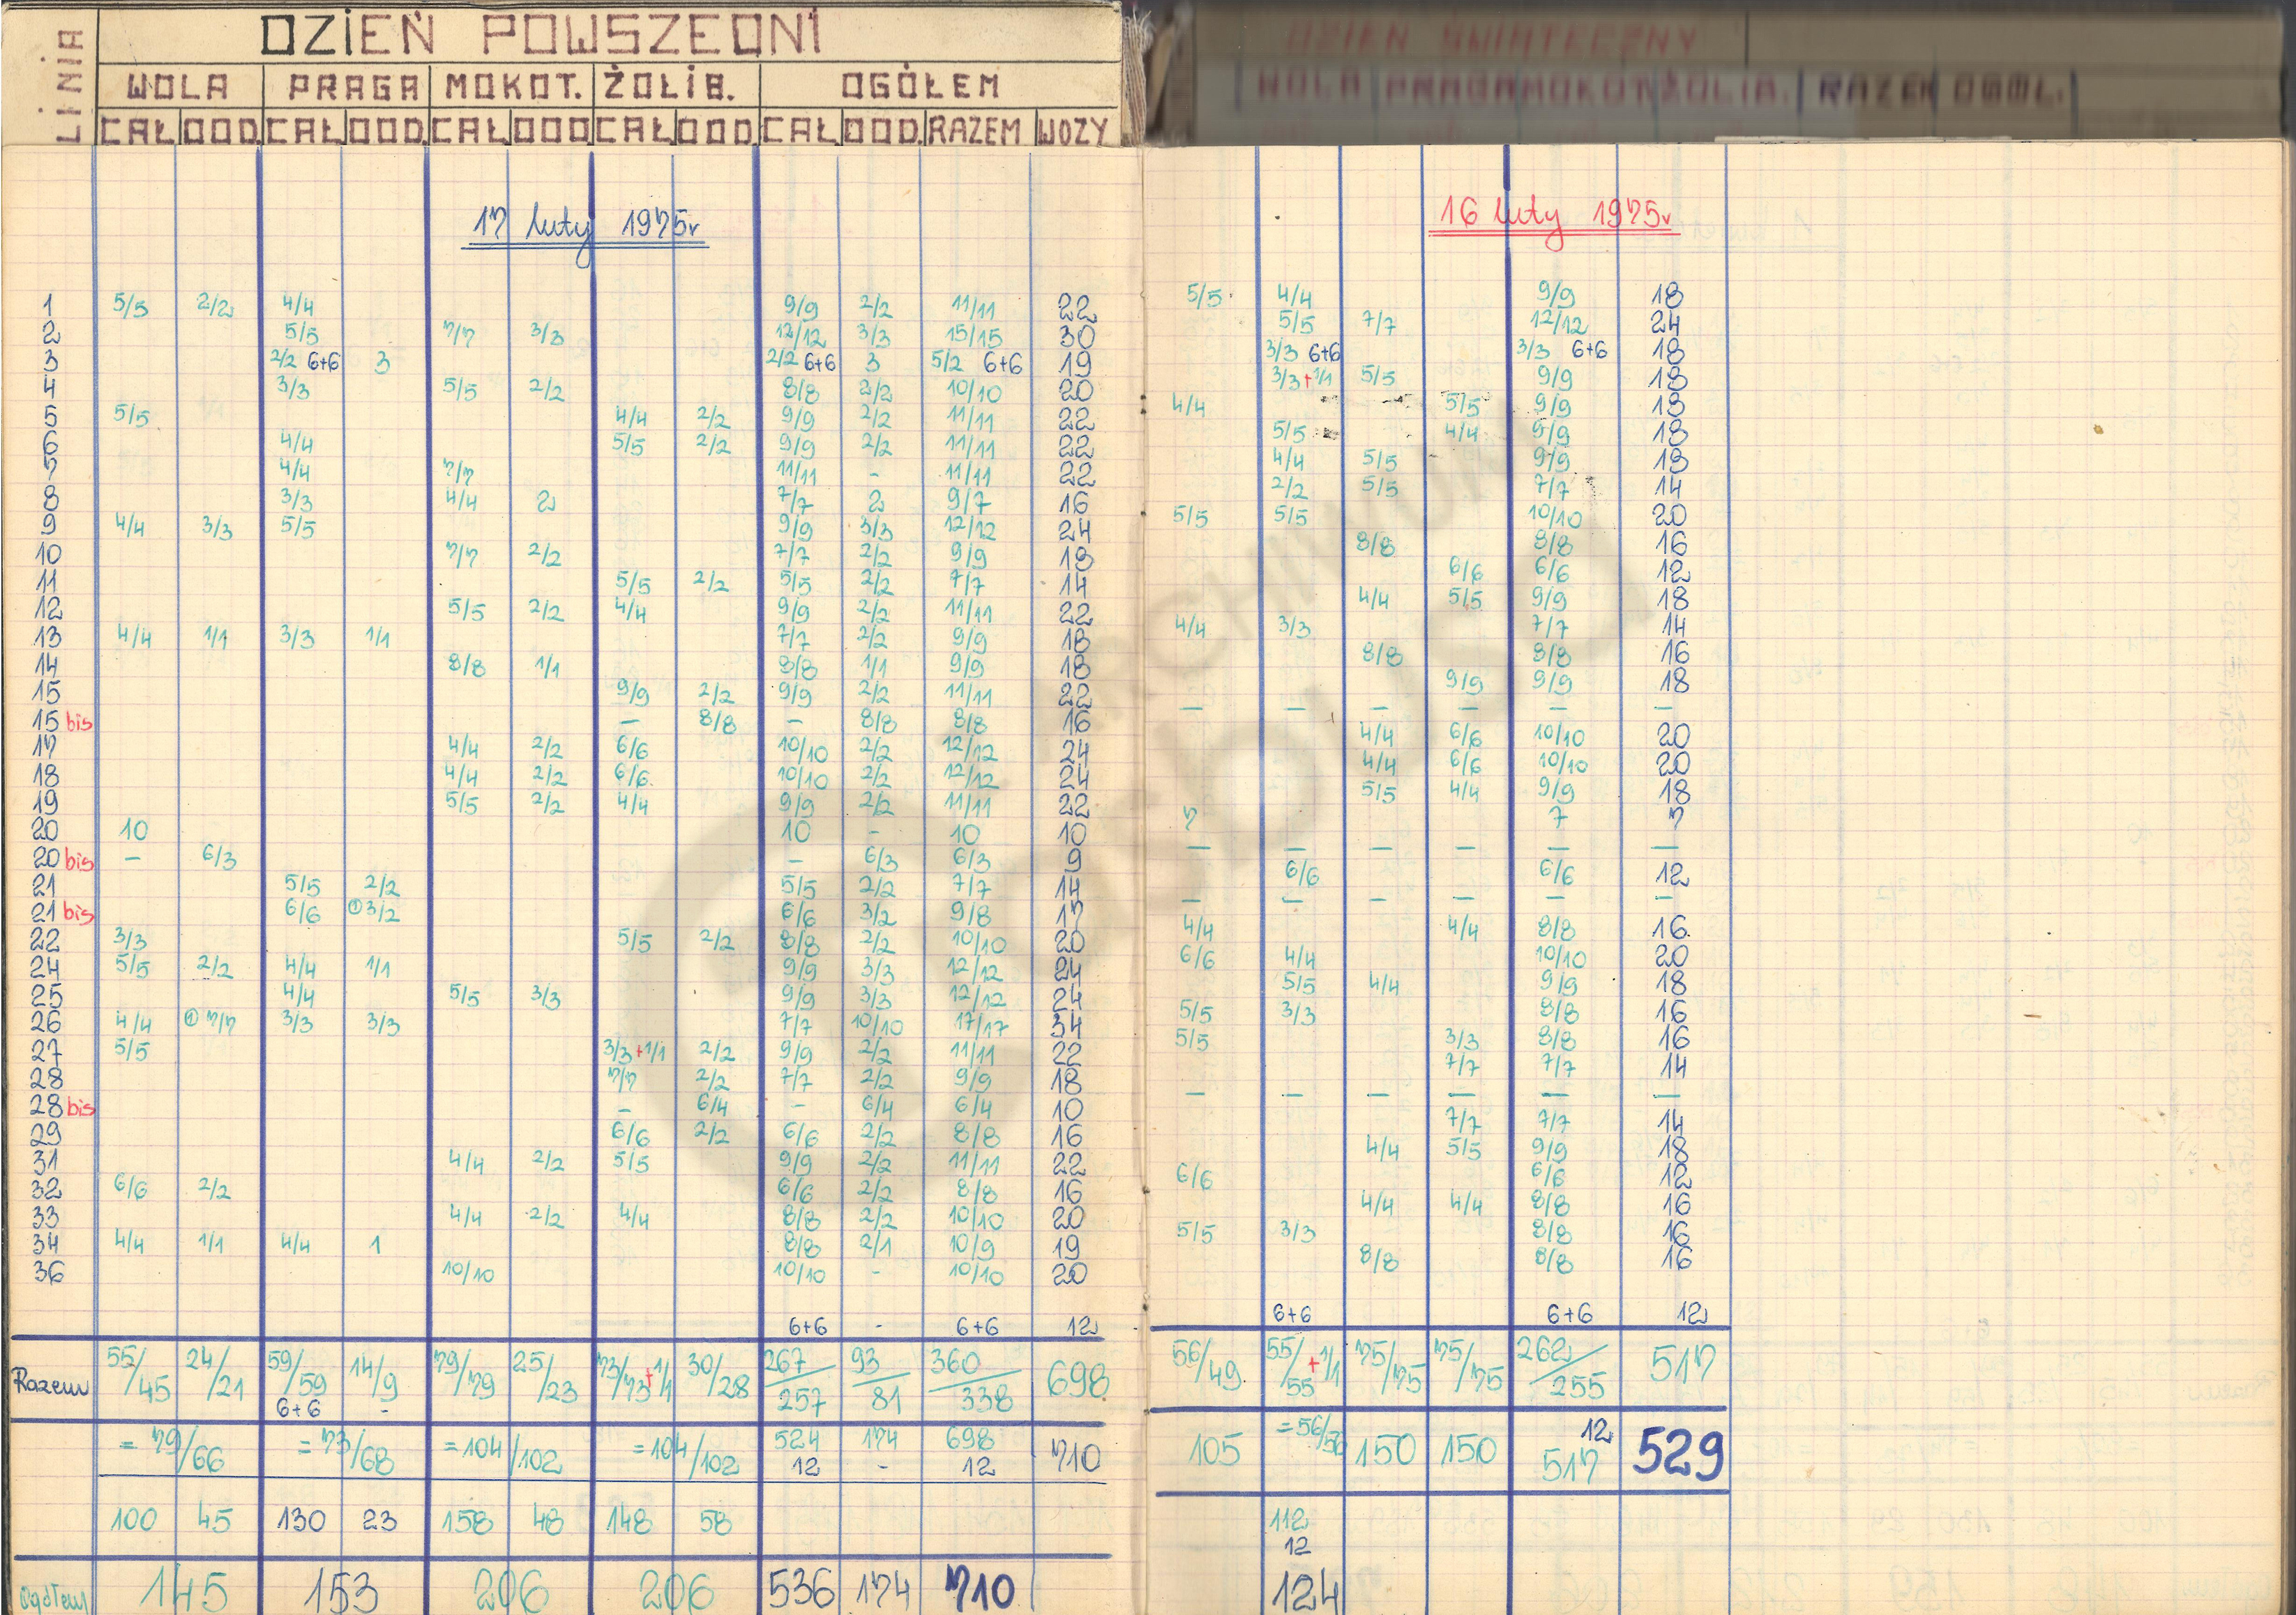 LINIA DZIEŃ POWSZEDNI
WOLA PRAGA MOKOT. ŻOLIB. OGÓŁEM
CAŁ DOD. CAŁ DOD. CAŁ DOD CAŁ DOD. CAŁ DOD. RAZEM WOZY
17 luty 1975r
1 5/5 2/2 4/4 9/9 2/2 11/11 22
2 5/5 7/7 3/3 12/12 3/3 15/15 30
3 2/2 6+6 3 2/2 6+6 3 5/2 6+6 19
4 3/3 5/5 2/2 8/8 2/2 10/10 20
5 5/5 4/4 2/2 9/9 2/2 11/11 22
6 4/4 5/5 2/2 9/9 2/2 11/11 22
7 4/4 7/7 11/11 - 11/11 22
8 3/3 4/4 2 7/7 2 9/7 16
9 4/4 3/3 5/5 9/9 3/3 12/12 24
10 7/7 2/2 7/7 2/2 9/9 18
11 5/5 2/2 5/5 2/2 7/7 14
12 5/5 2/2 4/4 9/9 2/2 11/11 22
13 4/4 1/1 3/3 1/1 7/7 2/2 9/9 18
14 8/8 1/1 8/8 1/1 9/9 18
15 9/9 2/2 9/9 2/2 11/11 22
15 bis - 8/8 - 8/8 8/8 16
17 4/4 2/2 6/6 10/10 2/2 12/12 24
18 4/4 2/2 6/6 10/10 2/2 12/12 24
19 5/5 2/2 4/4 9/9 2/2 11/11 22
20 10 10 - 10 10
20 bis - 6/3 - 6/3 6/3 9
21 5/5 2/2 5/5 2/2 7/7 14
21 bis 6/6 ① 3/2 6/6 3/2 9/8 17
22 3/3 5/5 2/2 8/8 2/2 10/10 20
24 5/5 2/2 4/4 1/1 9/9 3/3 12/12 24
25 4/4 5/5 3/3 9/9 3/3 12/12 24
26 4/4 ① 7/7 3/3 3/3 7/7 10/10 17/17 34
27 5/5 3/3+1/1 2/2 9/9 2/2 11/11 22
28 7/7 2/2 7/7 2/2 9/9 18
28 bis - 6/4 - 6/4 6/4 10
29 6/6 2/2 6/6 2/2 8/8 16
31 4/4 2/2 5/5 9/9 2/2 11/11 22
32 6/6 2/2 6/6 2/2 8/8 16
33 4/4 2/2 4/4 8/8 2/2 10/10 20
34 4/4 1/1 4/4 1 8/8 2/1 10/9 19
36 10/10 10/10 - 10/10 20
6+6 - 6+6 12
Razem 55/45 24/21 59/59 14/9 79/79 25/23 73/73+1/1 30/28 267/257 93/81 360/338 698
6+6 -
= 79/66 = 73/68 = 104/102 = 104/102 524 174 698 710
12 - 12
100 45 130 23 158 48 148 58
Ogółem 145 153 206 206 536 174 710
DZIEŃ ŚWIĄTECZNY
WOLA PRAGA MOKOT ŻOLIB. RAZEM OGÓŁ.
16 luty 1975r
5/5 4/4 9/9 18
5/5 7/7 12/12 24
3/3 6+6 3/3 6+6 18
3/3+1/1 5/5 9/9 18
4/4 5/5 9/9 18
5/5 4/4 9/9 18
4/4 5/5 9/9 18
2/2 5/5 7/7 14
5/5 5/5 10/10 20
8/8 8/8 16
6/6 6/6 12
4/4 5/5 9/9 18
4/4 3/3 7/7 14
8/8 8/8 16
9/9 9/9 18
- - - - - -
4/4 6/6 10/10 20
4/4 6/6 10/10 20
5/5 4/4 9/9 18
7 7 7
- - - - - -
6/6 6/6 12
- - - - - -
4/4 4/4 8/8 16
6/6 4/4 10/10 20
5/5 4/4 9/9 18
5/5 3/3 8/8 16
5/5 3/3 8/8 16
7/7 7/7 14
- - - - - -
7/7 7/7 14
4/4 5/5 9/9 18
6/6 6/6 12
4/4 4/4 8/8 16
5/5 3/3 8/8 16
8/8 8/8 16
6+6 6+6 12
56/49 55/55+1/1 75/75 75/75 262/255 517
105 = 56/56 150 150 12 529
517
112
12
124